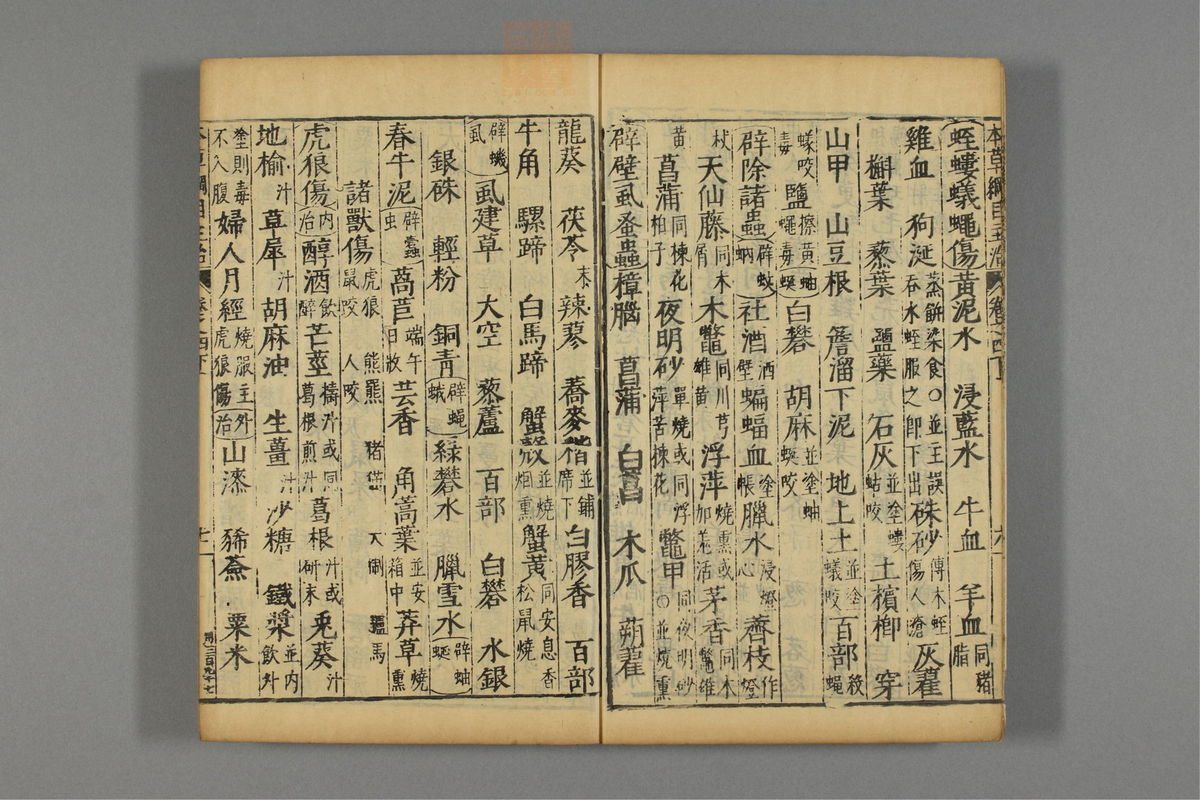 蛭螻蟻蠅傷黃泥水 浸藍水 牛血 羊血同豬脂
雞血 狗涎蒸餅染食○並主誤吞水蛭服之即下出硃砂傅木蛭傷人瘡灰藋
槲葉 藜葉 鹽藥 石灰並塗螻蛄咬土檳榔 穿
山甲 山豆根 簷溜下泥 地上土並塗蟻咬百部殺蠅
蟻咬毒鹽擦黃蠅毒蚰蜒白礬 胡麻並塗蚰蜒咬
辟除諸蟲辟蚊蚋社酒洒壁蝙蝠血塗帳臘水浸燈心蕎枝作燈
杖天仙藤同木屑木鱉同川芎雄黃浮萍燒熏或加羌活茅香同木鱉雄
黃菖蒲同楝花柏子夜明砂單燒或同浮萍苦楝花鱉甲同夜明砂○並燒熏
辟壁虱蚤蟲樟腦 菖蒲 白菖 木瓜 蒴藋
龍葵 茯苓末辣蓼 蕎麥稭並鋪席下白膠香 百部
牛角 騾蹄 白馬蹄 蟹殼並燒烟熏蟹黃同安息香松鼠燒
辟蟣虱虱建草 大空 藜蘆 百部 白礬 水銀
銀硃 輕粉 銅青辟蠅蛾綠礬水 臘雪水辟蚰蜒
春牛泥辟蠹蟲萵苣端午日收芸香 角蒿葉並安箱中莽草燒熏
諸獸傷虎狼 熊羆 豬貓 犬猘 驢馬 鼠咬 人咬
虎狼傷內治醇酒飲醉芒莖擣汁或同葛根煎汁葛根汁或研末兎葵汁
地榆汁草犀汁胡麻油 生薑汁沙糖 鐵漿並內飲外
塗則毒不入腹婦人月經燒服主虎狼傷外治山漆 豨薟 粟米